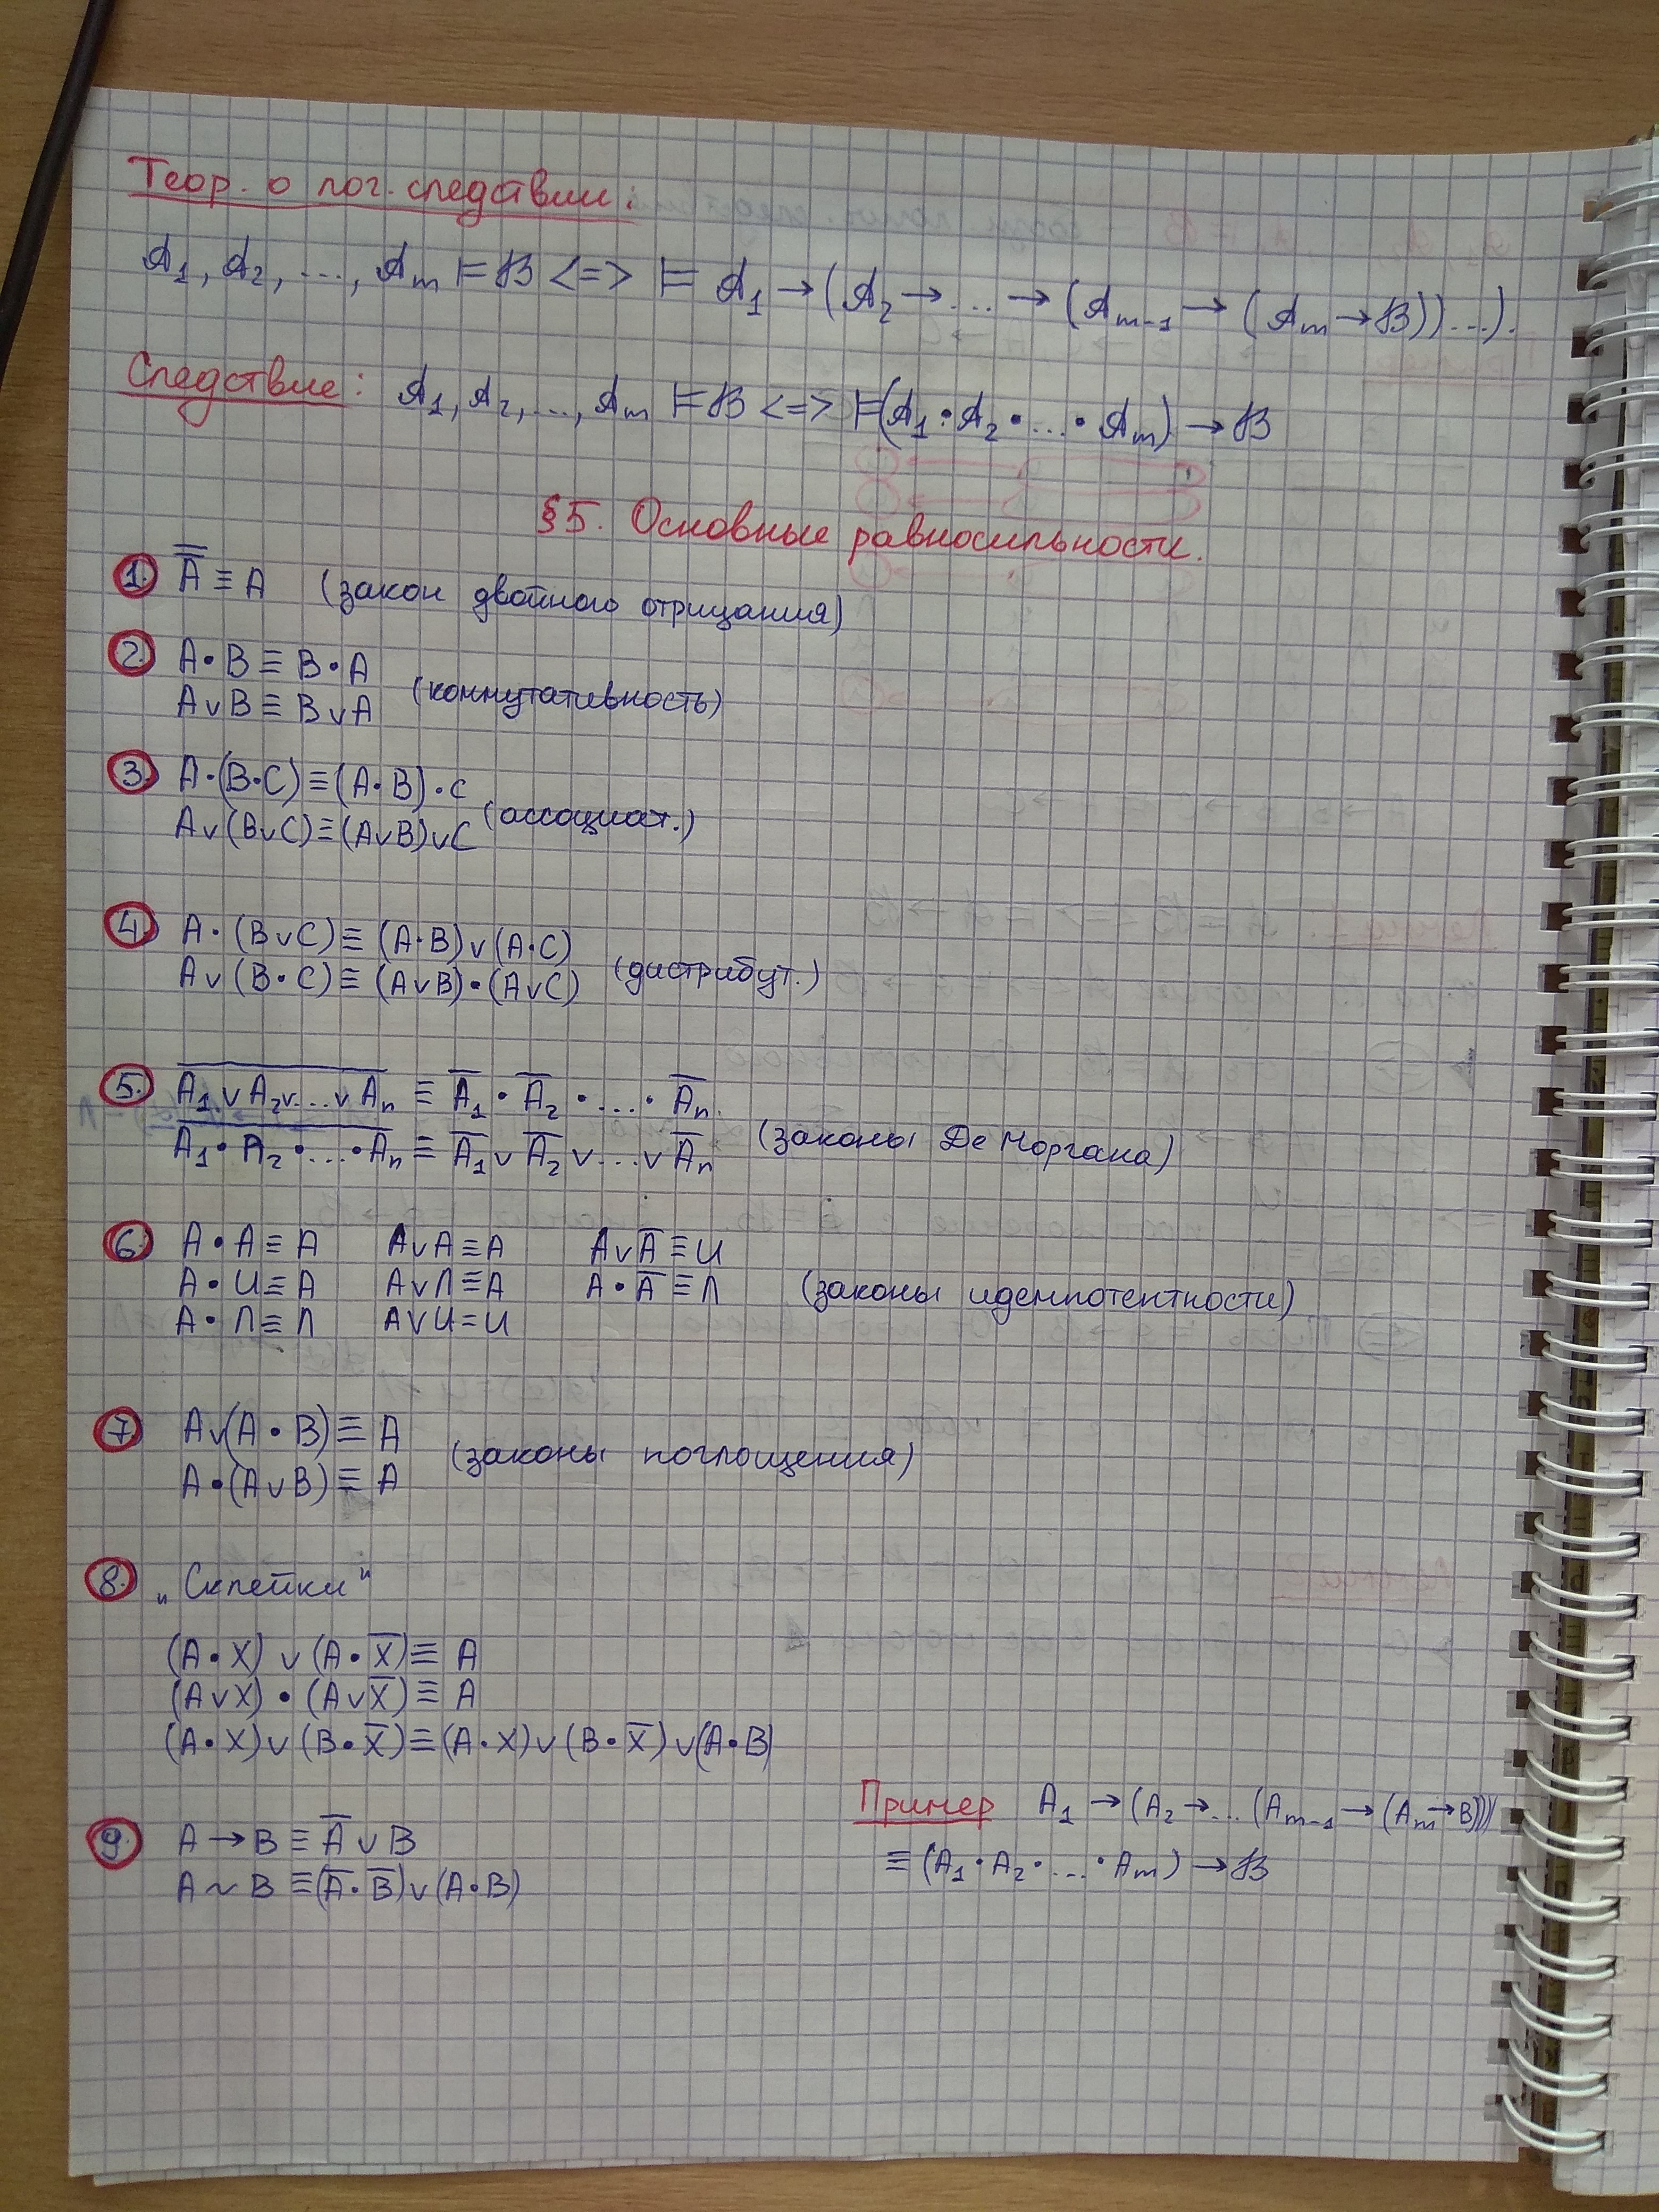 Теор. о лог. следствии:
𝒜₁, 𝒜₂, ..., 𝒜ₘ ⊨ ℬ <=> ⊨ 𝒜₁ → (𝒜₂ → ... → (𝒜ₘ₋₁ → (𝒜ₘ → ℬ))...).
Следствие: 𝒜₁, 𝒜₂, ..., 𝒜ₘ ⊨ ℬ <=> ⊨ (𝒜₁ • 𝒜₂ • ... • 𝒜ₘ) → ℬ
§5. Основные равносильности.
1. A̿ ≡ A (закон двойного отрицания)
2. A • B ≡ B • A
A ∨ B ≡ B ∨ A (коммутативность)
3. A • (B • C) ≡ (A • B) • C
A ∨ (B ∨ C) ≡ (A ∨ B) ∨ C (ассоциат.)
4. A • (B ∨ C) ≡ (A • B) ∨ (A • C)
A ∨ (B • C) ≡ (A ∨ B) • (A ∨ C) (дистрибут.)
5. \overline{A₁ ∨ A₂ ∨ ... ∨ Aₙ} ≡ A̅₁ • A̅₂ • ... • A̅ₙ.
\overline{A₁ • A₂ • ... • Aₙ} ≡ A̅₁ ∨ A̅₂ ∨ ... ∨ A̅ₙ (законы Де Моргана)
6. A • A ≡ A A ∨ A ≡ A A ∨ A̅ ≡ И
A • И ≡ A A ∨ Л ≡ A A • A̅ ≡ Л (законы идемпотентности)
A • Л ≡ Л A ∨ И = И
7. A ∨ (A • B) ≡ A
A • (A ∨ B) ≡ A (законы поглощения)
8. „Склейки“
(A • X) ∨ (A • X̅) ≡ A
(A ∨ X) • (A ∨ X̅) ≡ A
(A • X) ∨ (B • X̅) ≡ (A • X) ∨ (B • X̅) ∨ (A • B)
9. A → B ≡ A̅ ∨ B
A ~ B ≡ (A̅ • B̅) ∨ (A • B)
Пример A₁ → (A₂ → ... (Aₘ₋₁ → (Aₘ → B)))
≡ (A₁ • A₂ • ... • Aₘ) → ℬ